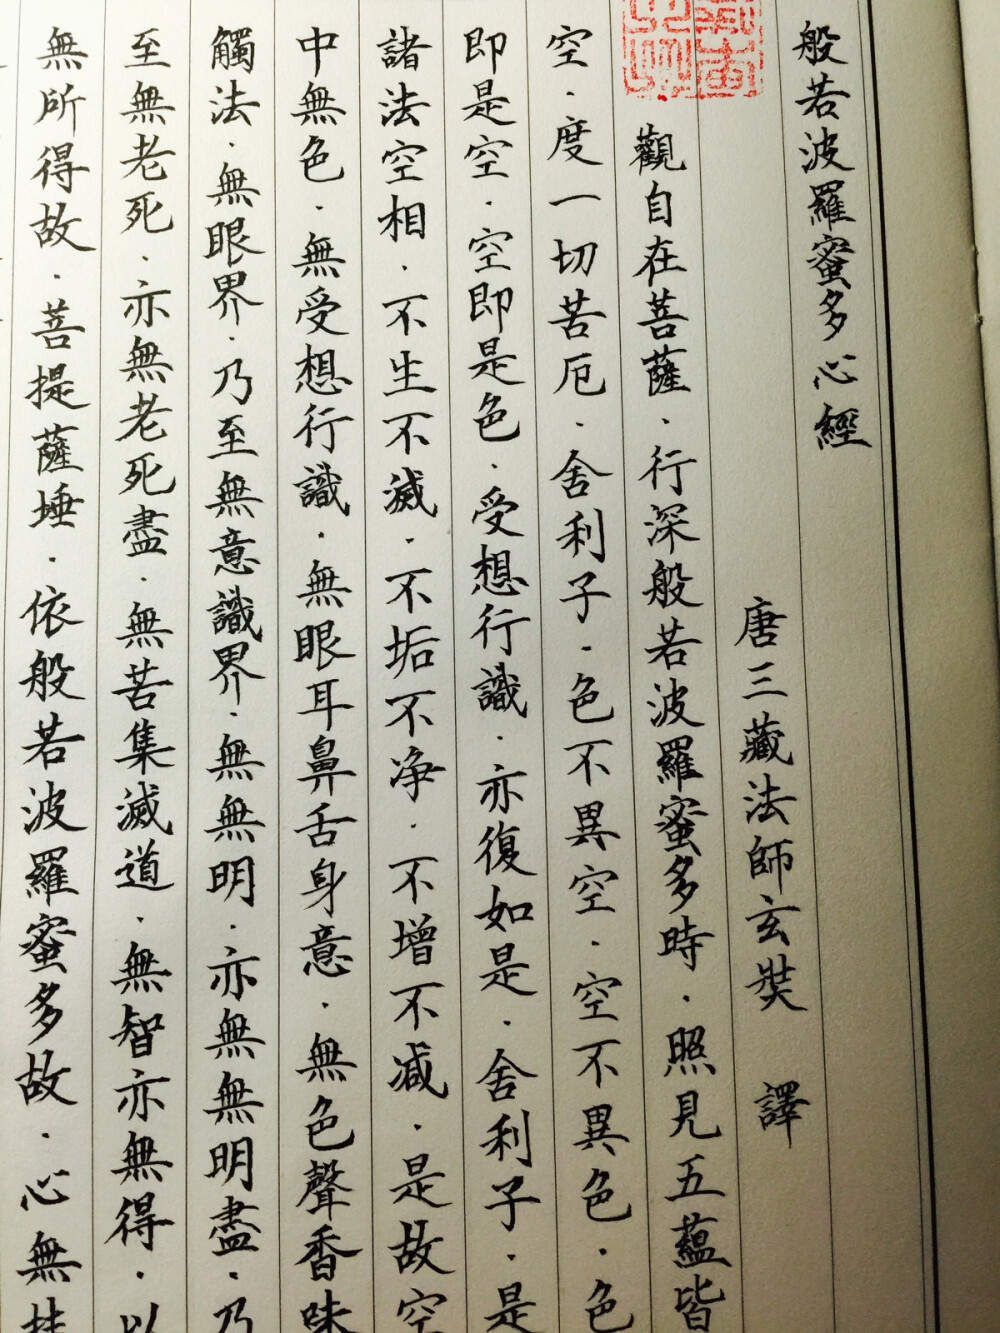 般若波羅蜜多心經
唐三藏法師玄奘 譯
觀自在菩薩．行深般若波羅蜜多時．照見五蘊皆
空．度一切苦厄．舍利子．色不異空．空不異色．色
即是空．空即是色．受想行識．亦復如是．舍利子．是
諸法空相．不生不滅．不垢不净．不增不减．是故空
中無色．無受想行識．無眼耳鼻舌身意．無色聲香味
觸法．無眼界．乃至無意識界．無無明．亦無無明盡．乃
至無老死．亦無老死盡．無苦集滅道．無智亦無得．以
無所得故．菩提薩埵．依般若波羅蜜多故．心無挂